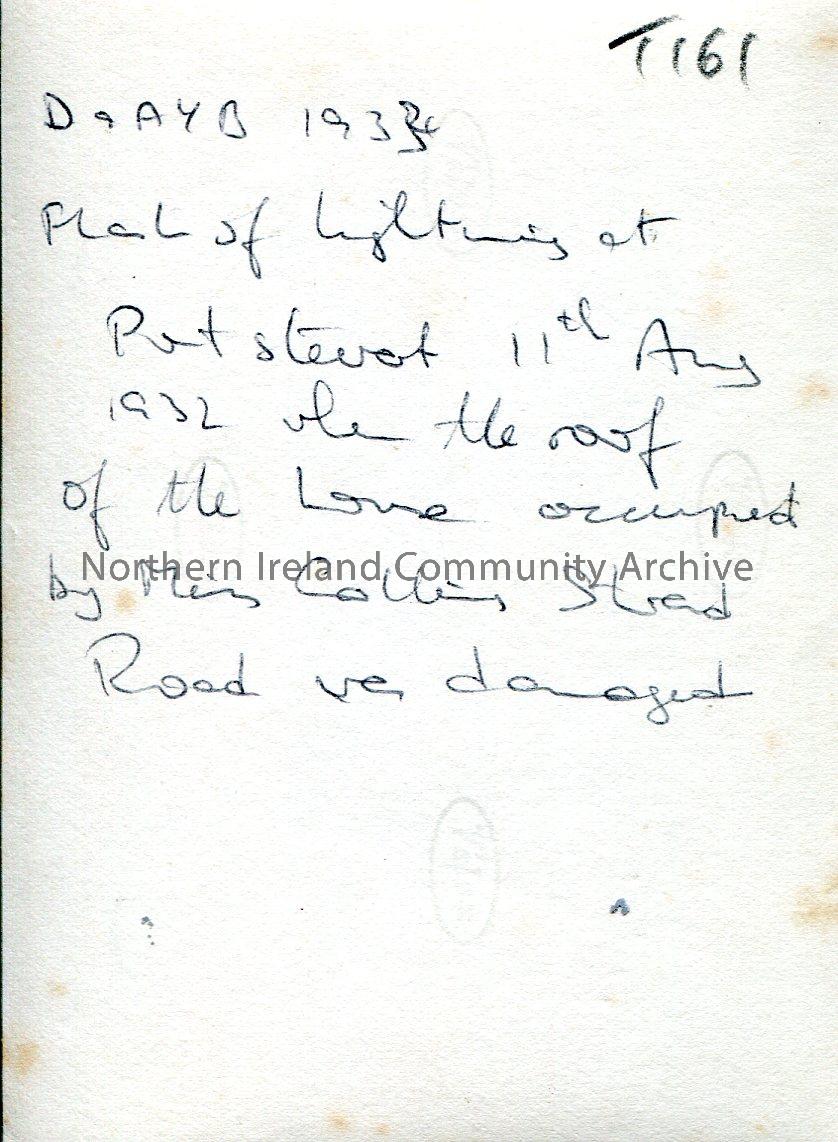 T161
D & A Y B 1933
Flash of lightning at
Portstewart 11th Aug
1932 when the roof
of the house occupied
Northern Ireland Community Archive
by Miss Collins Strand
Road was damaged